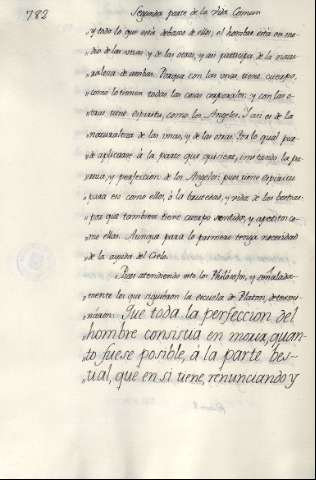 782
Segunda parte de la vida Comun
y todo lo que está debaxo de ellos; el hombre está en me-
„dio de las unas, y de las otras, y asi participa de la natu-
„raleza de ambas. Porque con las unas tiene cuerpo,
„como lo tienen todas las cosas corporales: y con las o-
„tras tiene espiritu, como los Angeles. Y asi es de la
„naturaleza de las unas, y de las otras. Por lo qual pue-
„de aplicarse á la parte que quisiere, imitando la pu-
„reza, y perfeccion de los Angeles: pues tiene espiritu
„para eso como ellos, ó la baxeza, y vida de las bestias,
„pues que tambien tiene cuerpo sentido, y apetitos co-
„mo ellas. Aunque para lo primero tenga necesidad
„de la ayuda del Cielo.
„Pues atendiendo esto los Philosofos, y señalada-
„mente los que siguieron la escuela de Platon, determi-
„naron: Que toda la perfeccion del
„hombre consistia en morir, quan-
„to fuese posible, á la parte bes-
„tial, que en si tiene, renunciando y